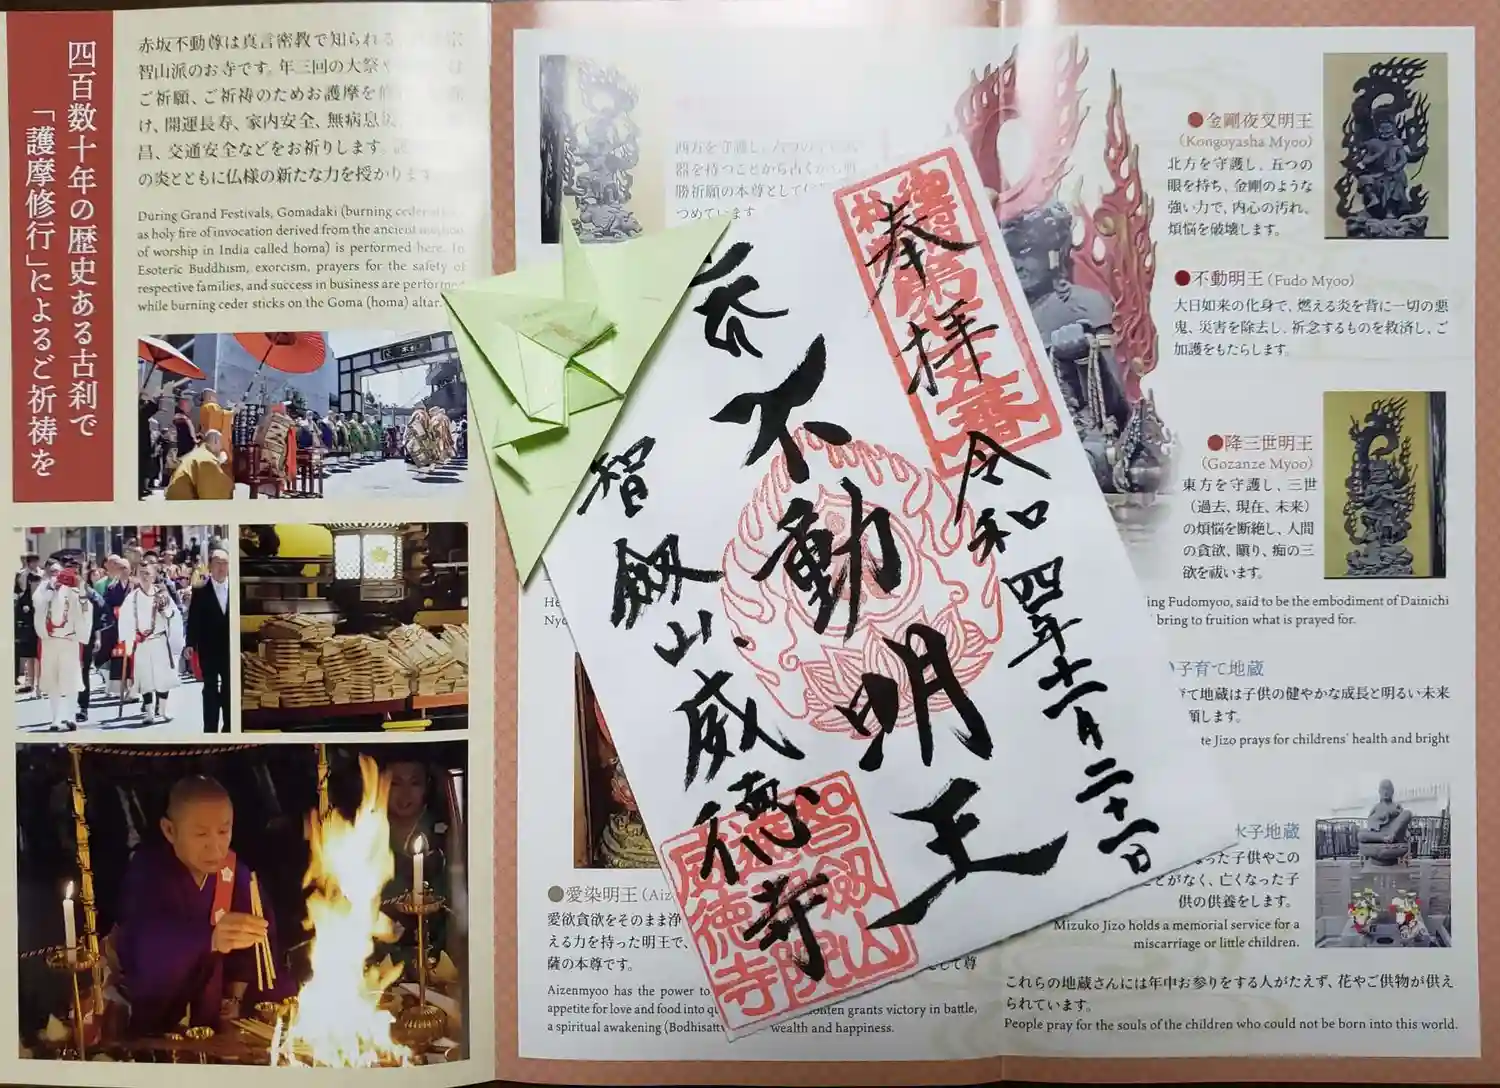 四百数十年の歴史ある古刹で
「護摩修行」によるご祈祷を
赤坂不動尊は真言密教で知られる
智山派のお寺です。年三回の大祭や
ご祈願、ご祈祷のためお護摩を
け、開運長寿、家内安全、無病息災
昌、交通安全などをお祈りします。
の炎とともに仏様の新たな力を授かります
During Grand Festivals, Gomadaki (burning ceder
as holy fire of invocation derived from the ancient
of worship in India called homa) is performed here. In
Esoteric Buddhism, exorcism, prayers for the safety of
respective families, and success in business are performed
while burning ceder sticks on the Goma (homa) altar.
西方を守護し、六つの
器を持つことから古くから
勝祈願の本尊として
つめています
奉拝
令和四年十一月二十一日
不動明王
智劔山威徳寺
智劔山
威徳寺
●金剛夜叉明王
(Kongoyasha Myoo)
北方を守護し、五つの
眼を持ち、金剛のような
強い力で、内心の汚れ、
煩悩を破壊します。
●不動明王(Fudo Myoo)
大日如来の化身で、燃える炎を背に一切の悪
鬼、災害を除去し、祈念するものを救済し、ご
加護をもたらします。
●降三世明王
(Gozanze Myoo)
東方を守護し、三世
(過去、現在、未来)
の煩悩を断絶し、人間
の貪欲、瞋り、痴の三
欲を祓います。
ing Fudomyoo, said to be the embodiment of Dainichi
bring to fruition what is prayed for.
子育て地蔵
て地蔵は子供の健やかな成長と明るい未来
願します。
te Jizo prays for childrens' health and bright
水子地蔵
なった子供やこの
ことがなく、亡くなった子
供の供養をします。
Mizuko Jizo holds a memorial service for a
miscarriage or little children.
これらの地蔵さんには年中お参りをする人がたえず、花やご供物が供え
られています。
People pray for the souls of the children who could not be born into this world.
●愛染明王(Aiz
愛欲貪欲をそのまま浄
える力を持った明王で、
薩の本尊です。
して尊
Aizenmyoo has the power to
appetite for love and food into
grants victory in battle,
a spiritual awakening (Bodhisatt
wealth and happiness.